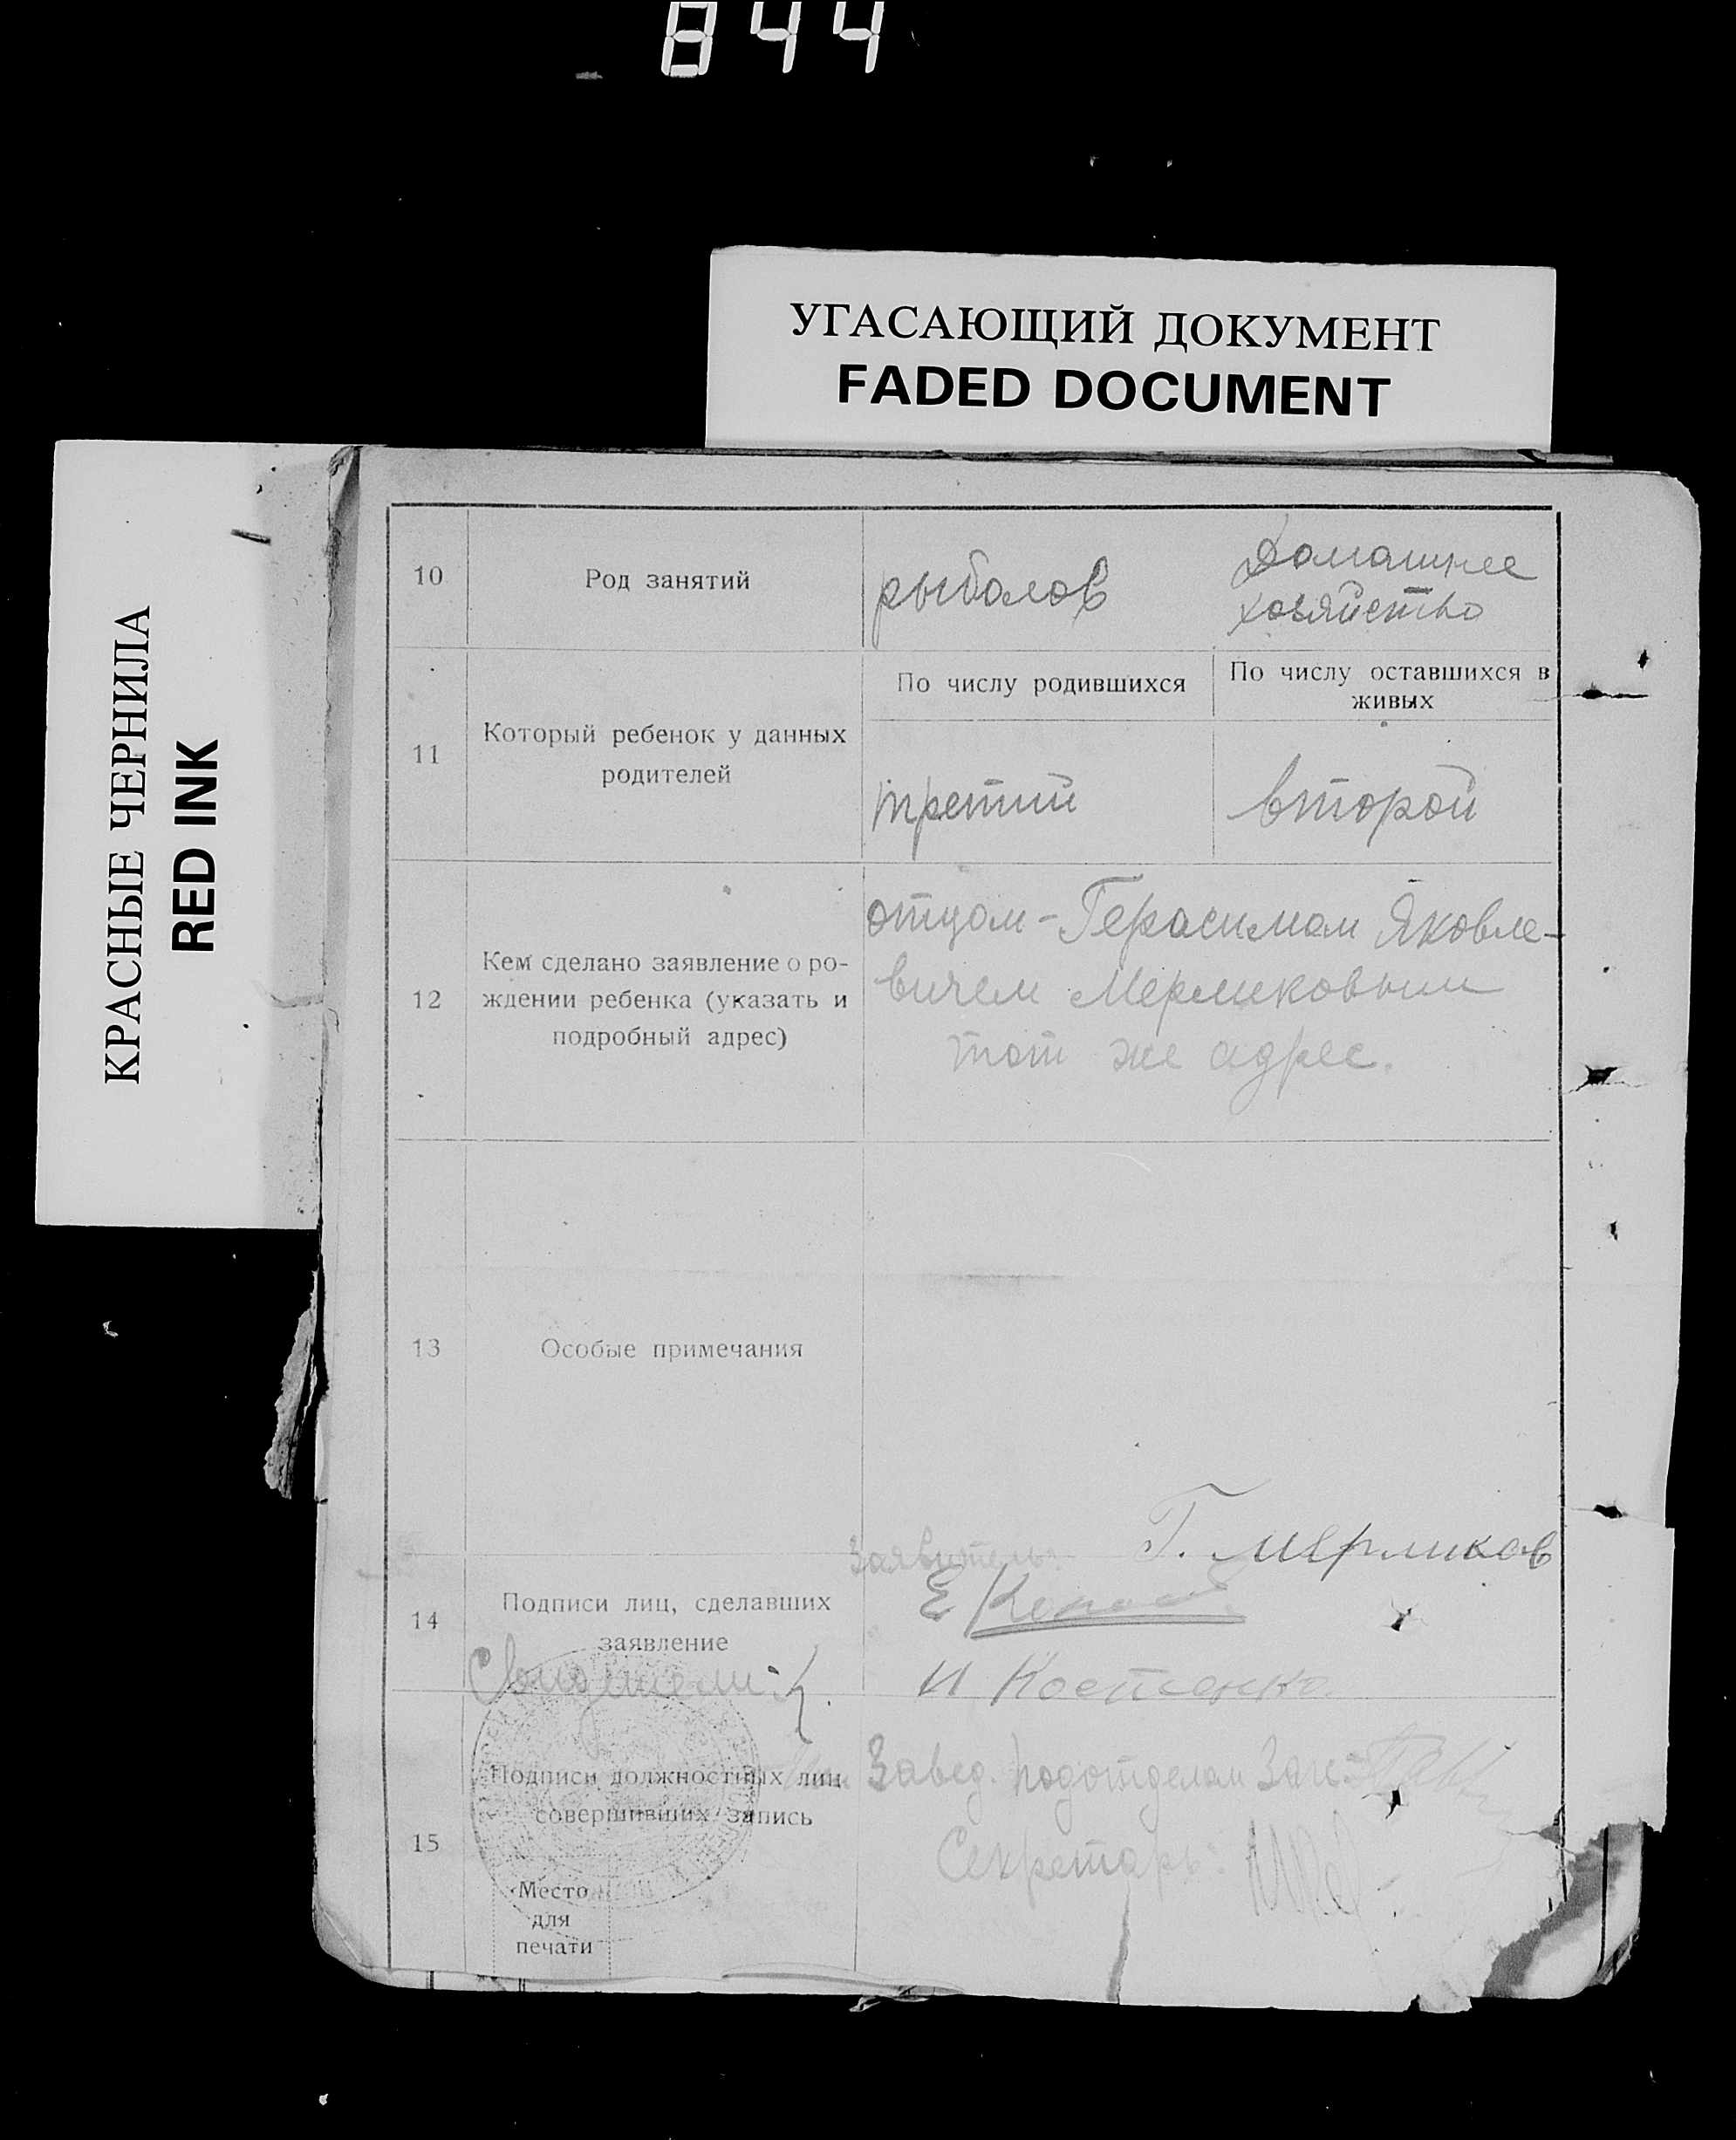 844
УГАСАЮЩИЙ ДОКУМЕНТ
FADED DOCUMENT
КРАСНЫЕ ЧЕРНИЛА
RED INK
10 Род занятий рыболов Домашнее
хозяйство
11 Который ребенок у данных
родителей
По числу родившихся По числу оставшихся в
живых
третий второй
12 Кем сделано заявление о ро-
ждении ребенка (указать и
подробный адрес)
отцом - Герасимом Яковле-
вичем Мермиковым
тот же адрес.
13 Особые примечания
Заявитель: Г. Мермиков
14 Подписи лиц, сделавших
заявление
Е
Свидетели:
И Костенко
15 Подписи должностных лиц
совершивших запись
Завед. подотделом
Секретарь:
Место
для
печати